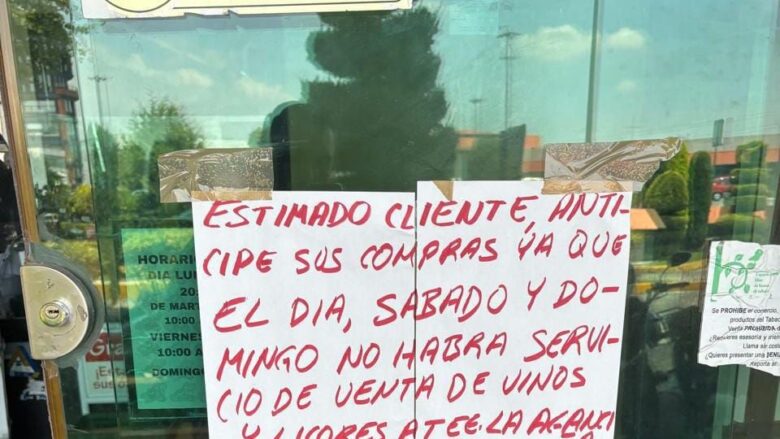 ESTIMADO CLIENTE, ANTI-
CIPE SUS COMPRAS YA QUE
EL DIA, SABADO Y DO-
MINGO NO HABRA SERVI-
CIO DE VENTA DE VINOS
Y LICORES ATTE: LA AGENCI
HORARI
DIA LU
20
DE MAR
10:00
VIERNES
10:00 A
DOMINGO
Gra
¡Est
sus
Se PROHIBE el comercio,
productos del Taba
Venta PROHIBIDA
¿Requieres asesoría y
Llama sin cost
¿Quieres presentar una
Reporta an